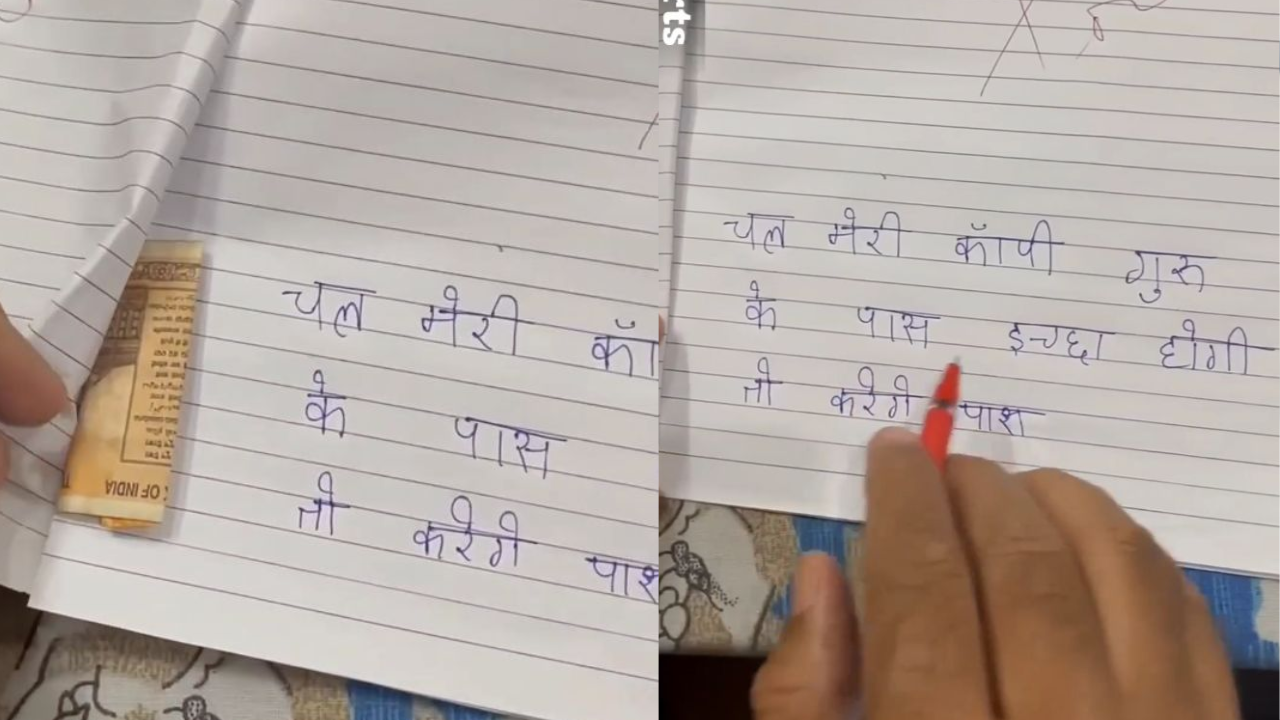 OF INDIA
चल मेरी कॉ
के पास
तो करेगे पाश
rts
चल मेरी कॉपी गुरु
के पास इच्छा होगी
तो करेगे पाश